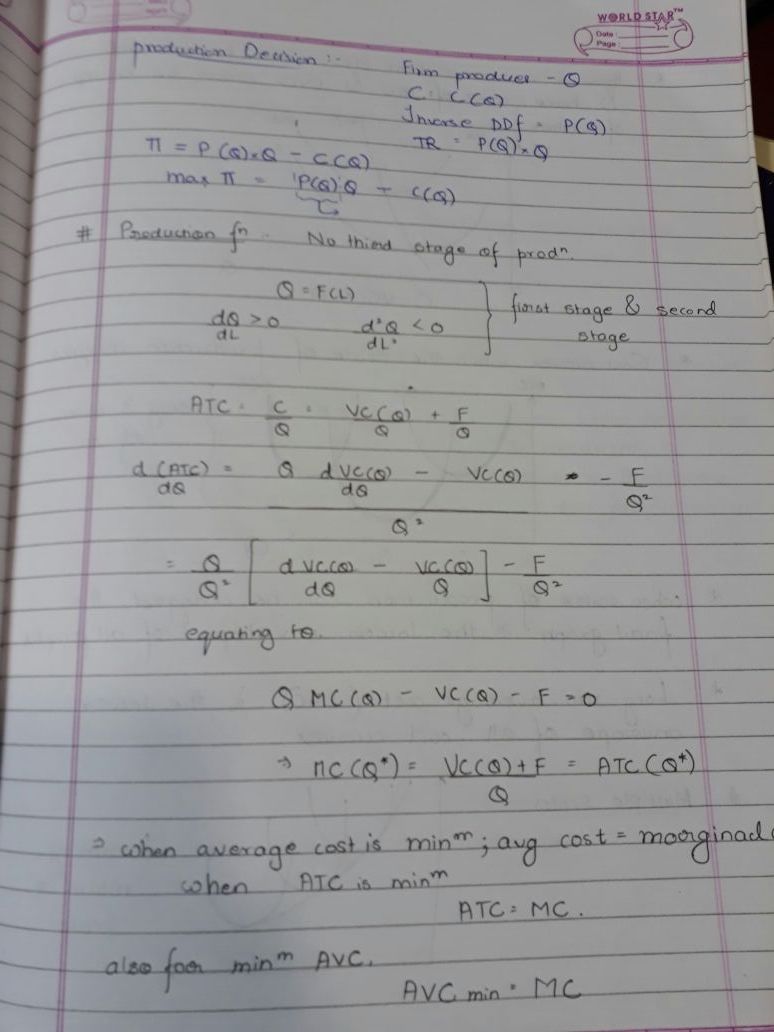 WORLD STAR™
Date :
Page :
production Decision :-
Firm produces - Q
C = C(Q)
Inverse DDf = P(Q)
TR = P(Q)×Q
π = P(Q)×Q - C(Q)
max π = P(Q)Q - C(Q)
# Production fⁿ - No third stage of prodⁿ.
Q = F(L)
dQ/dL > 0 d²Q/dL² < 0 } first stage & second stage
ATC = C/Q = VC(Q)/Q + F/Q
d(ATC)/dQ = (Q dVC(Q)/dQ - VC(Q))/Q² - F/Q²
= Q/Q² [ dVC(Q)/dQ - VC(Q)/Q ] - F/Q²
equating to.
Q MC(Q) - VC(Q) - F = 0
⇒ MC(Q*) = (VC(Q)+F)/Q = ATC(Q*)
⇒ when average cost is minᵐ ; avg cost = marginal
when ATC is minᵐ
ATC = MC.
also for minᵐ AVC.
AVC min = MC